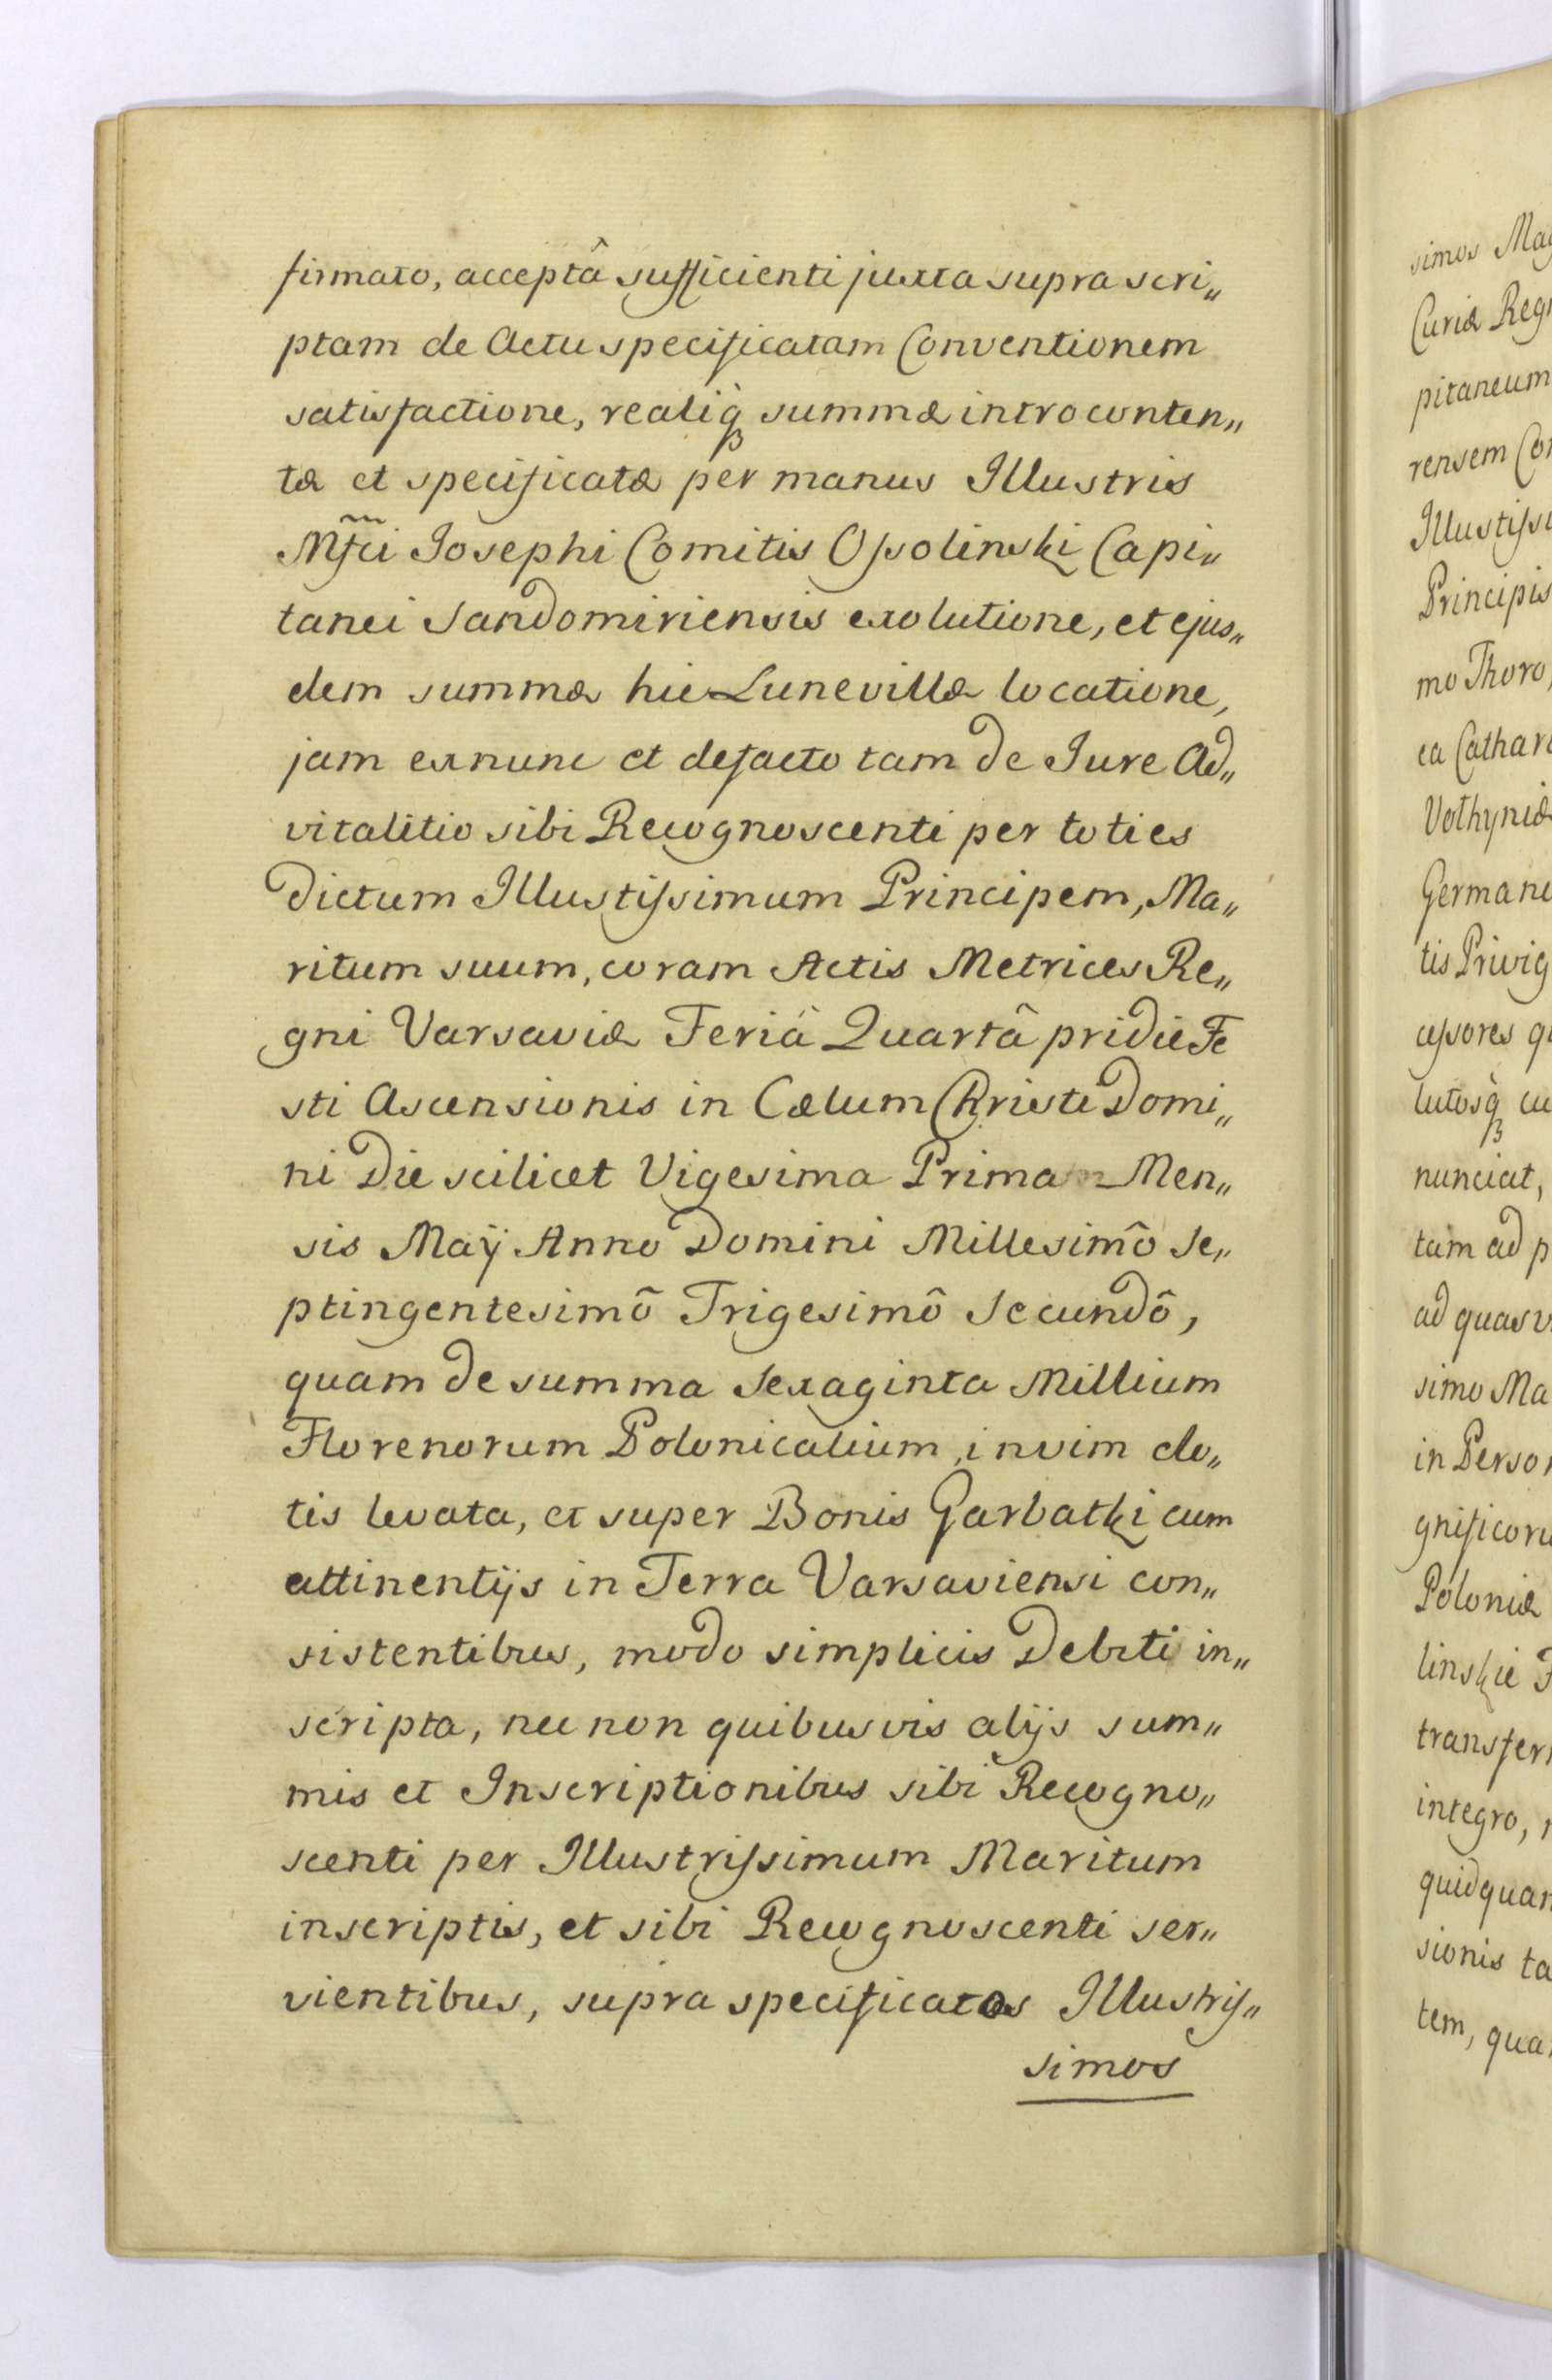 firmato, acceptâ sufficienti juxta supra scri„
ptam de Actu specificatam Conventionem
satisfactione, realiq́ꝫ summæ introconten„
tæ et specificatæ per manus Illustris
Mf̃ci Josephi Comitis Ossolinski Capi„
tanei Sandomiriensis exolutione, et ejus„
dem summæ hic Lunevillæ locatione,
jam exnunc et defacto tam de Jure Ad„
vitalitio sibi Recognoscenti per toties
dictum Illustissimum Principem, Ma„
ritum suum, coram Actis Metrices Re„
gni Varsaviæ Feriâ Quartâ pridie Fe
sti Ascensionis in Cælum Christi Domi„
ni Die scilicet Vigesima Prima Men„
sis Maÿ Anno Domini Millesimô Se„
ptingentesimô Trigesimô Secundô,
quam de summa Sexaginta Millium
Florenorum Polonicalium, in vim do„
tis levata, et super Bonis Garbatki cum
attinentijs in Terra Varsaviensi con„
sistentibus, modo simplicis Debiti in„
scripta, nec non quibusvis alijs sum„
mis et Inscriptionibus sibi Recogno„
scenti per Illustrissimum Maritum
inscriptis, et sibi Recognoscenti ser„
vientibus, supra specificatos Illustris„
simos
simos Mag
Curiæ Regn
pitaneum
rensem Com
Illustissi
Principis
mo Thoro,
ea Cathar
Volhyniæ
Germani
tis Privig
cessores qu
lutosq́ꝫ cu
nunciat,
tam ad p
ad quasv
simo Ma
in Person
gnificoru
Poloniæ
linskie F
transfer
integro,
quidquam
sionis ta
tem, qua